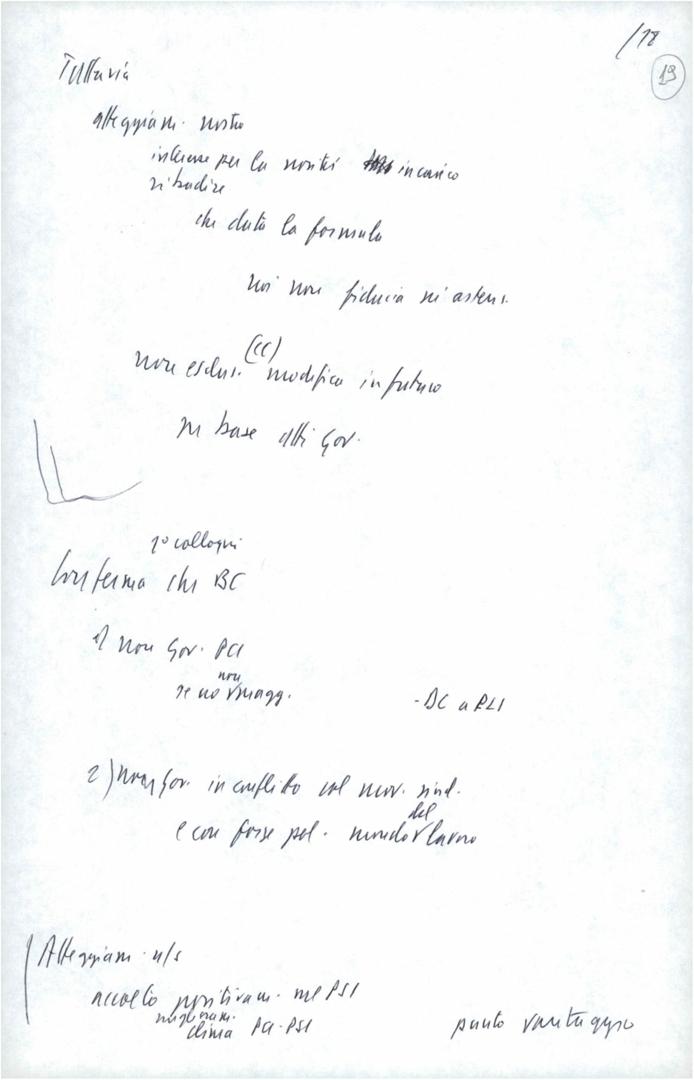 /18
19
Tuttavia
atteggiam. nostro
interesse per la novità incarico
ribadire
che data la formula
noi non fiducia né astens.
(CC)
non esclus. modifica in futuro
su base atti Gov.
1° colloqui
Conferma che BC
1) non Gov. PCI
non
se no v magg.
- DC a PLI
2) non Gov. in conflitto col mov. sind.
del
e con forze pol. mondo v lavoro
Atteggiam. n/s
accolto positivam. nel PSI
migloram.
clima PCI-PSI
punto vantaggio